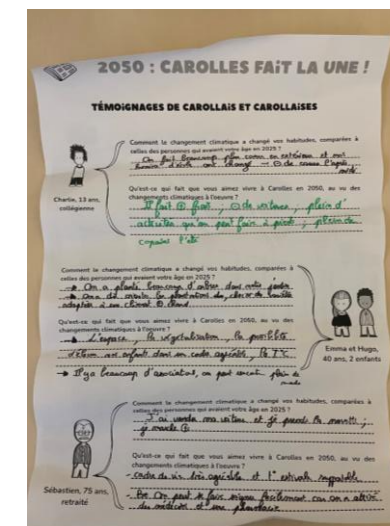 2050 : CAROLLES FAiT LA UNE !
TÉMOiGNAGES DE CAROLLAiS ET CAROLLAiSES
Comment le changement climatique a changé vos habitudes, comparées à
celles des personnes qui avaient votre âge en 2025 ?
On fait beaucoup plus cours en extérieur et nos
ont changé → ⊖ de cours l'après
midi
Charlie, 13 ans,
collégienne
Qu'est-ce qui fait que vous aimez vivre à Carolles en 2050, au vu des
changements climatiques à l'oeuvre ?
Il fait ⊕ frais ; ⊖ de voitures ; plein d'
activités qu'on peut faire à pied ; plein de
copains l'été
Comment le changement climatique a changé vos habitudes, comparées à
celles des personnes qui avaient votre âge en 2025 ?
→ On a planté beaucoup d'arbres dans notre jardin
→ On a dû choisir la plantation
adaptées à un climat ⊕ chaud
Qu'est-ce qui fait que vous aimez vivre à Carolles en 2050, au vu des
changements climatiques à l'oeuvre ?
→ L'espace, la végétalisation, la possibilité
d'élever nos enfants dans un cadre agréable, la T°C
→ Il y a beaucoup d'associations, on peut plein de
monde
Emma et Hugo,
40 ans, 2 enfants
Comment le changement climatique a changé vos habitudes, comparées à
celles des personnes qui avaient votre âge en 2025 ?
J'ai vendu ma voiture et je prends la navette ;
je marche ⊕
Sébastien, 75 ans,
retraité
Qu'est-ce qui fait que vous aimez vivre à Carolles en 2050, au vu des
changements climatiques à l'oeuvre ?
- cadre de vie très agréable et T° estivale supportable
On peut se faire soigner facilement car on a attiré
des médecins et une pharmacie